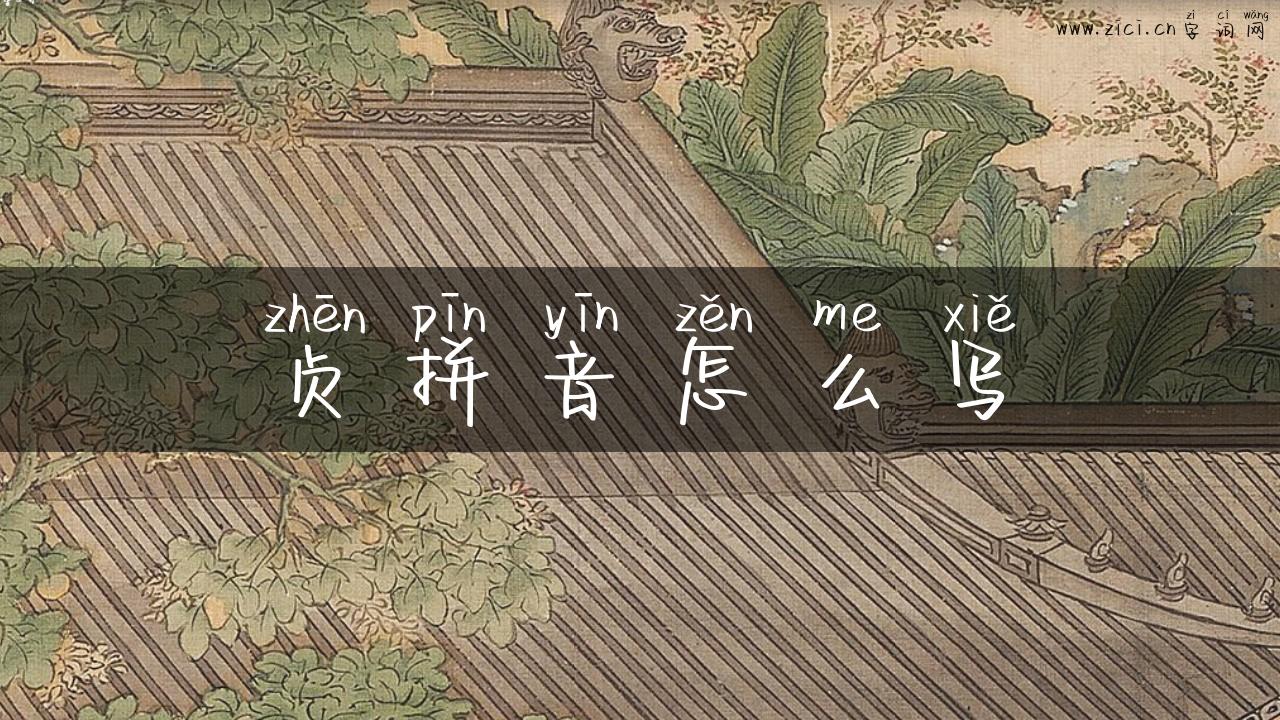 zì cí wǎng
www.zici.cn 字词网
zhēn pīn yīn zěn me xiě
贞拼音怎么写